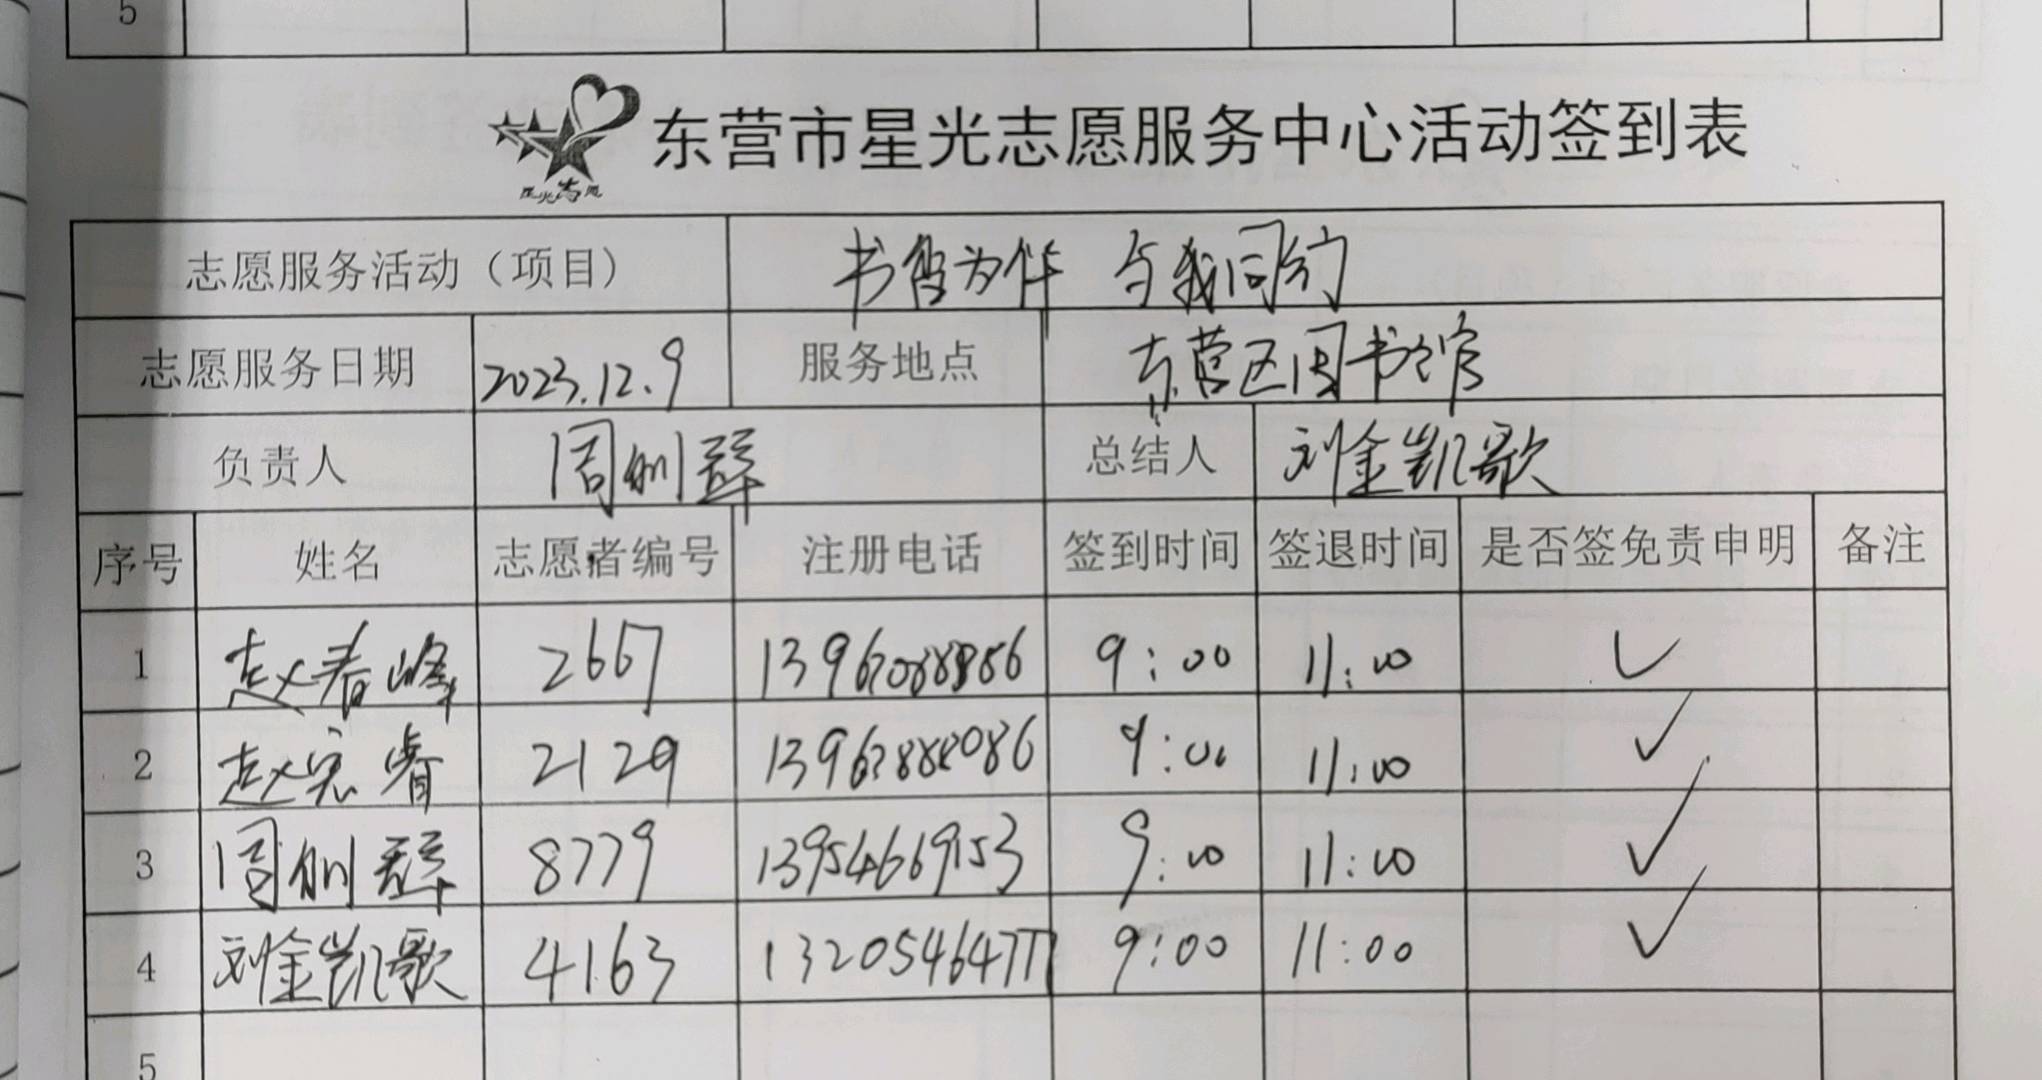 5
东营市星光志愿服务中心活动签到表
星光志愿
志愿服务活动（项目） 书香为伴 与我同行
志愿服务日期 2023.12.9 服务地点 东营区图书馆
负责人 周 总结人 刘金凯歌
序号 姓名 志愿者编号 注册电话 签到时间 签退时间 是否签免责申明 备注
1 赵春峰 2667 9:00 11:00 ✓
2 赵宏睿 2129 9:00 11:00 ✓
3 周 8779 13954669153 9:00 11:00 ✓
4 刘金凯歌 4163 13205464777 9:00 11:00 ✓
5